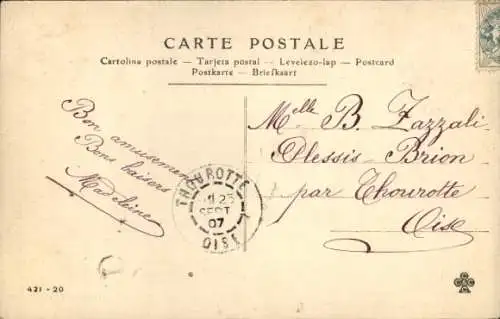 CARTE POSTALE
Cartolina postale — Tarjeta postal — Levelezo-lap — Postcard
Postkarte — Briefkaart
Bon amusement
Bons baisers
Madeleine
Melle B. Zazzali
Plessis-Brion
par Thourotte
Oise
THOUROTTE
25
SEPT
07
OISE
421 - 20